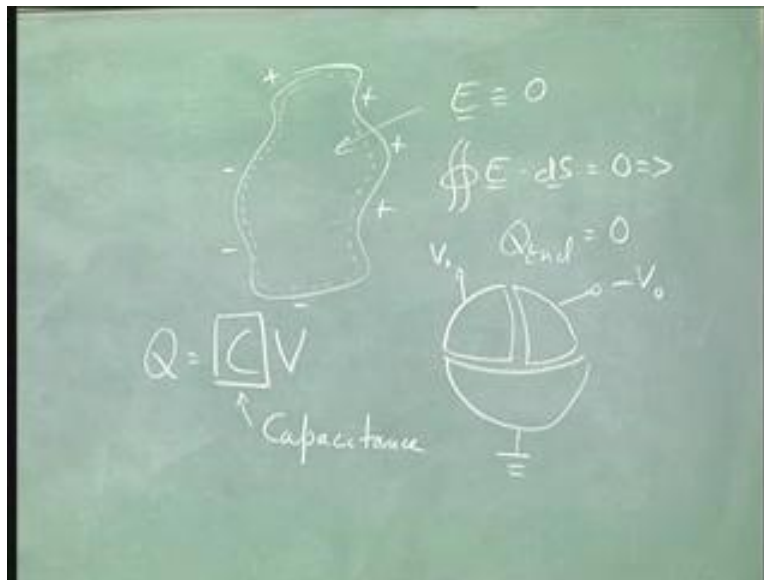 +
+
E ≡ 0
+
∯ E · dS = 0 =>
-
+
Q_End = 0
-
V₀
-V₀
-
Q = C V
Capacitance